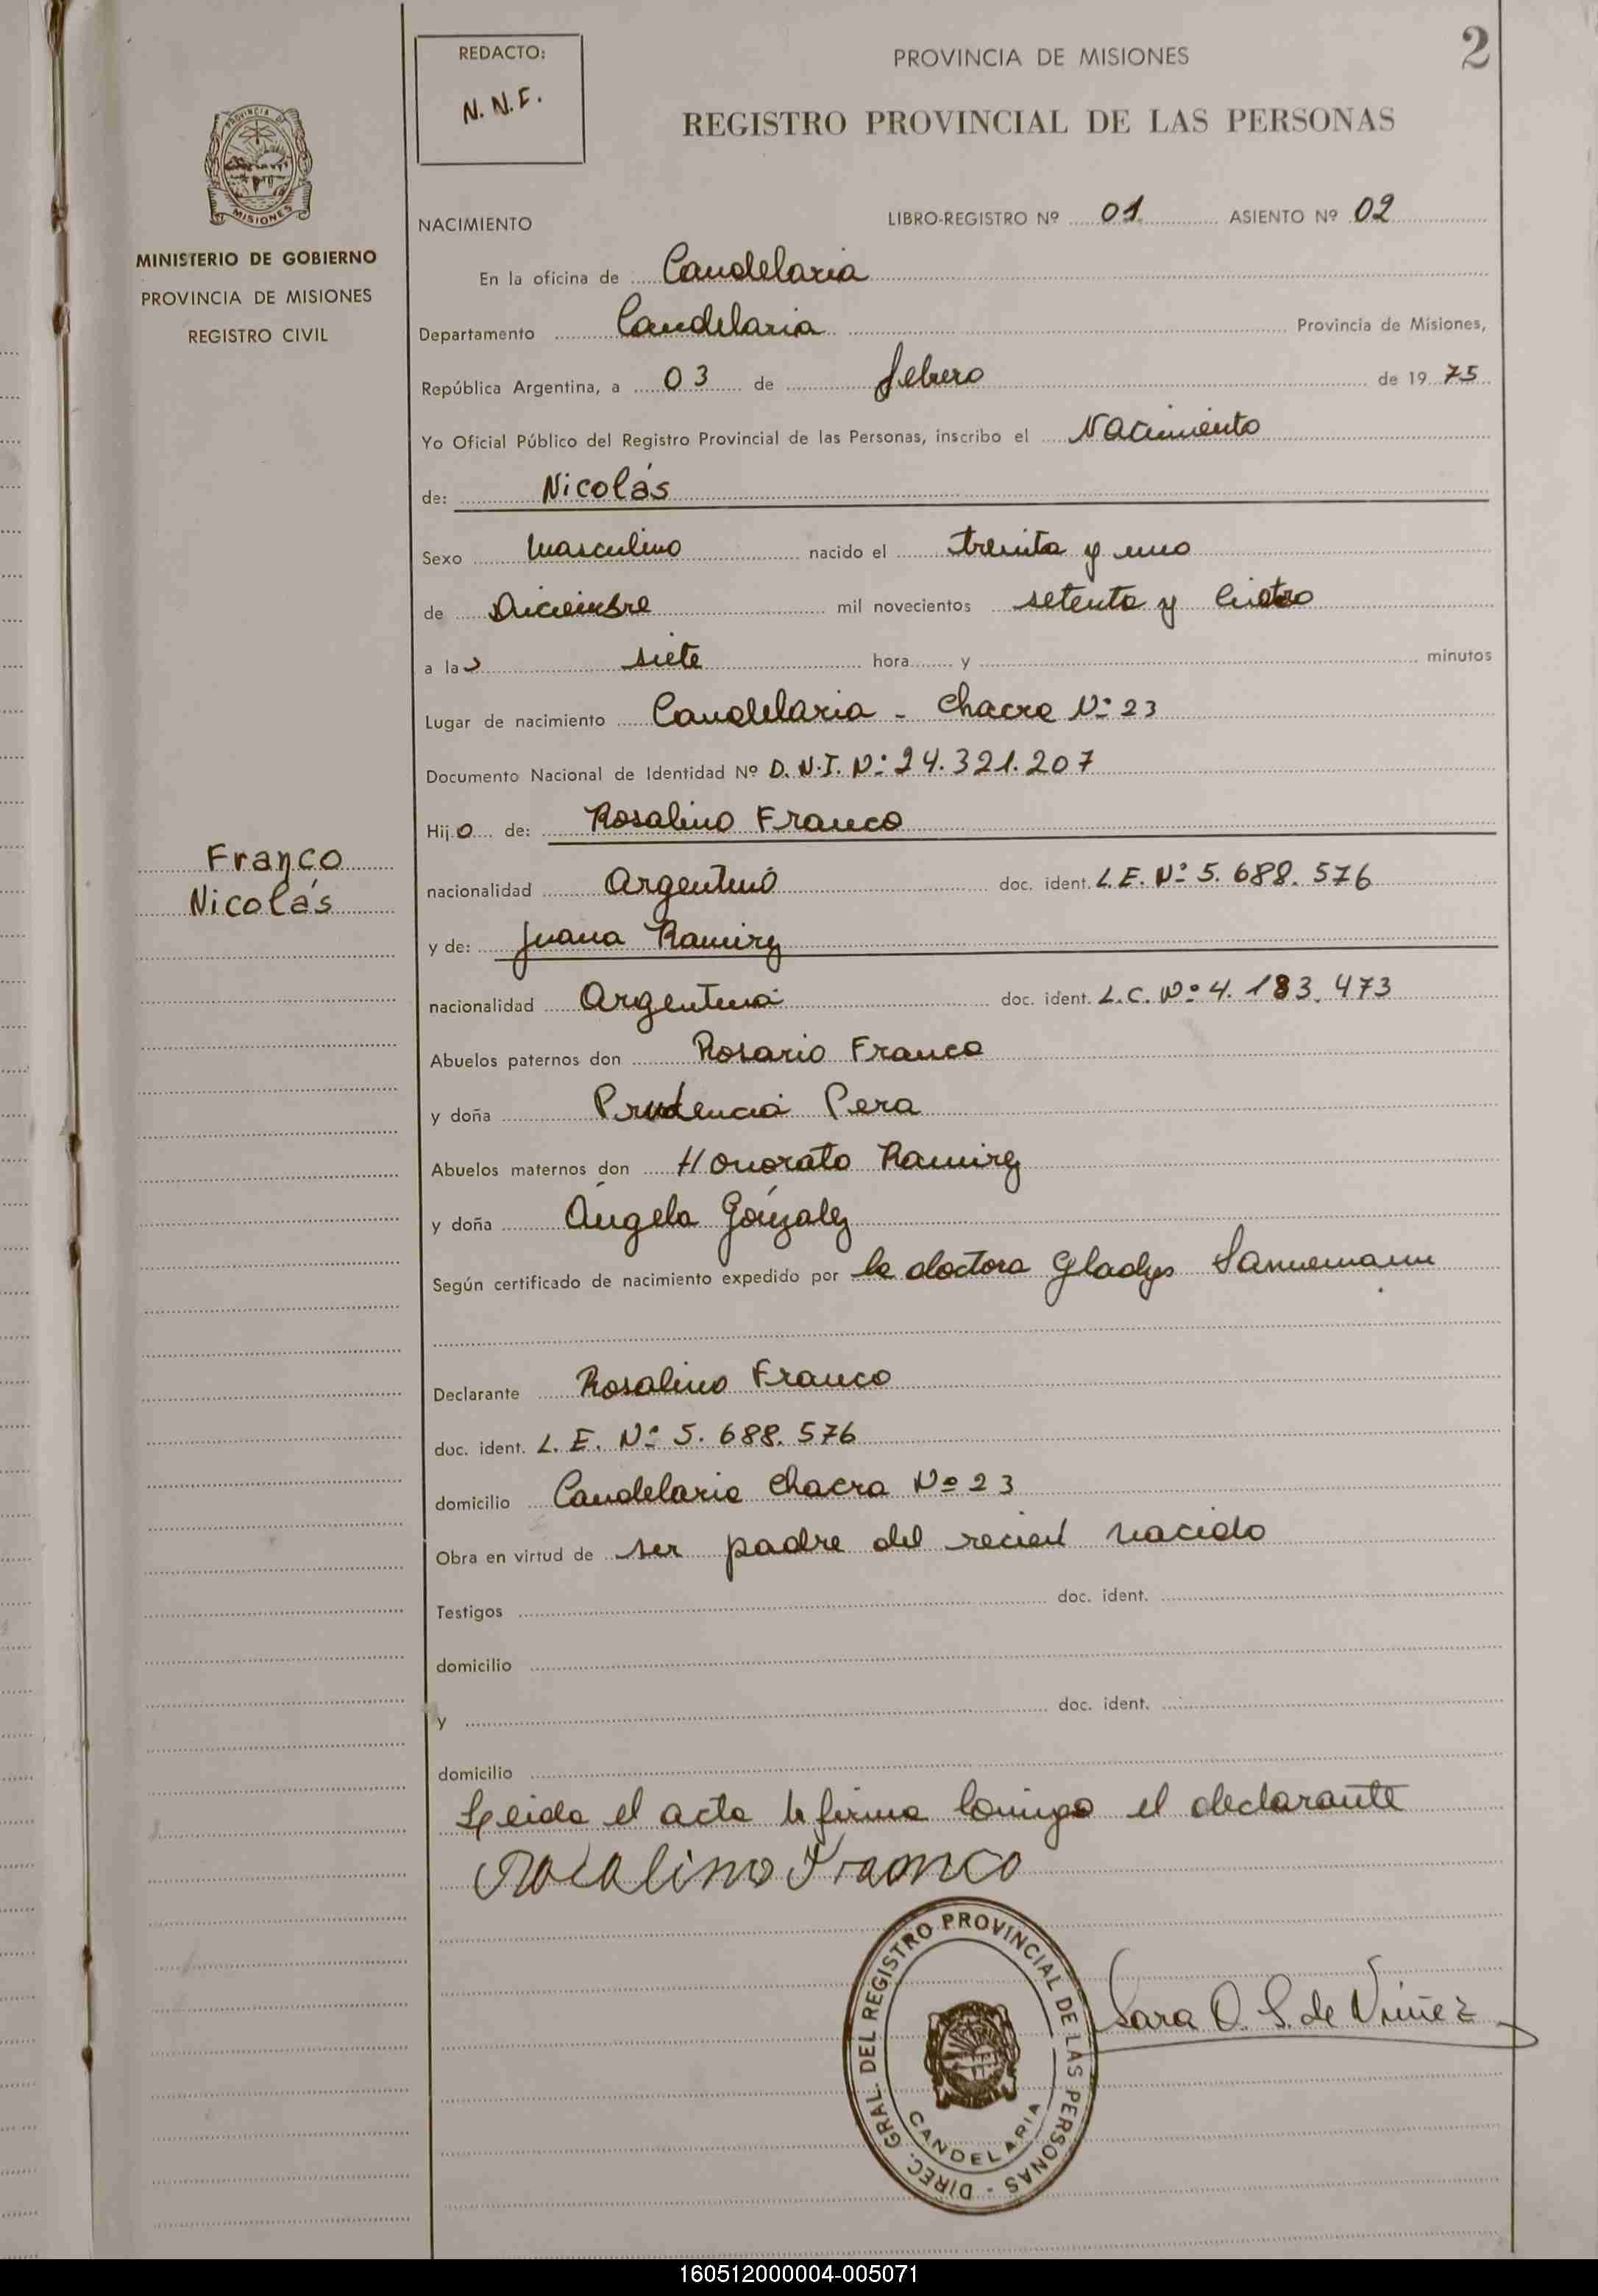 REDACTO:
N. N. F.
PROVINCIA DE MISIONES
2
REGISTRO PROVINCIAL DE LAS PERSONAS
PROVINCIA DE
MISIONES
MINISTERIO DE GOBIERNO
PROVINCIA DE MISIONES
REGISTRO CIVIL
NACIMIENTO
LIBRO-REGISTRO Nº 01 ASIENTO Nº 02
En la oficina de Candelaria
Departamento Candelaria Provincia de Misiones,
República Argentina, a 03 de febrero de 19 75
Yo Oficial Público del Registro Provincial de las Personas, inscribo el Nacimiento
de: Nicolás
Sexo Masculino nacido el treinta y uno
de Diciembre mil novecientos setenta y cuatro
a las siete hora y minutos
Lugar de nacimiento Candelaria - Chacra Nº 23
Documento Nacional de Identidad Nº D.N.I. Nº 24.321.207
Hijo de: Rosalino Franco
Franco
Nicolás
nacionalidad Argentino doc. ident. L.E. Nº 5.688.576
y de: Juana Ramirez
nacionalidad Argentina doc. ident. L.C. Nº 4.183.473
Abuelos paternos don Rosario Franco
y doña Prudencia Pera
Abuelos maternos don Honorato Ramirez
y doña Angela Gónzalez
Según certificado de nacimiento expedido por la doctora Gladys Sannemann
Declarante Rosalino Franco
doc. ident. L.E. Nº 5.688.576
domicilio Candelaria Chacra Nº 23
Obra en virtud de ser padre del recien nacido
Testigos doc. ident.
domicilio
y doc. ident.
domicilio
Leida el acta la firma conmigo el declarante
Rosalino Franco
DIREC. GRAL. DEL REGISTRO PROVINCIAL DE LAS PERSONAS -
CANDELARIA
Sara O. S. de Núñez
160512000004-005071